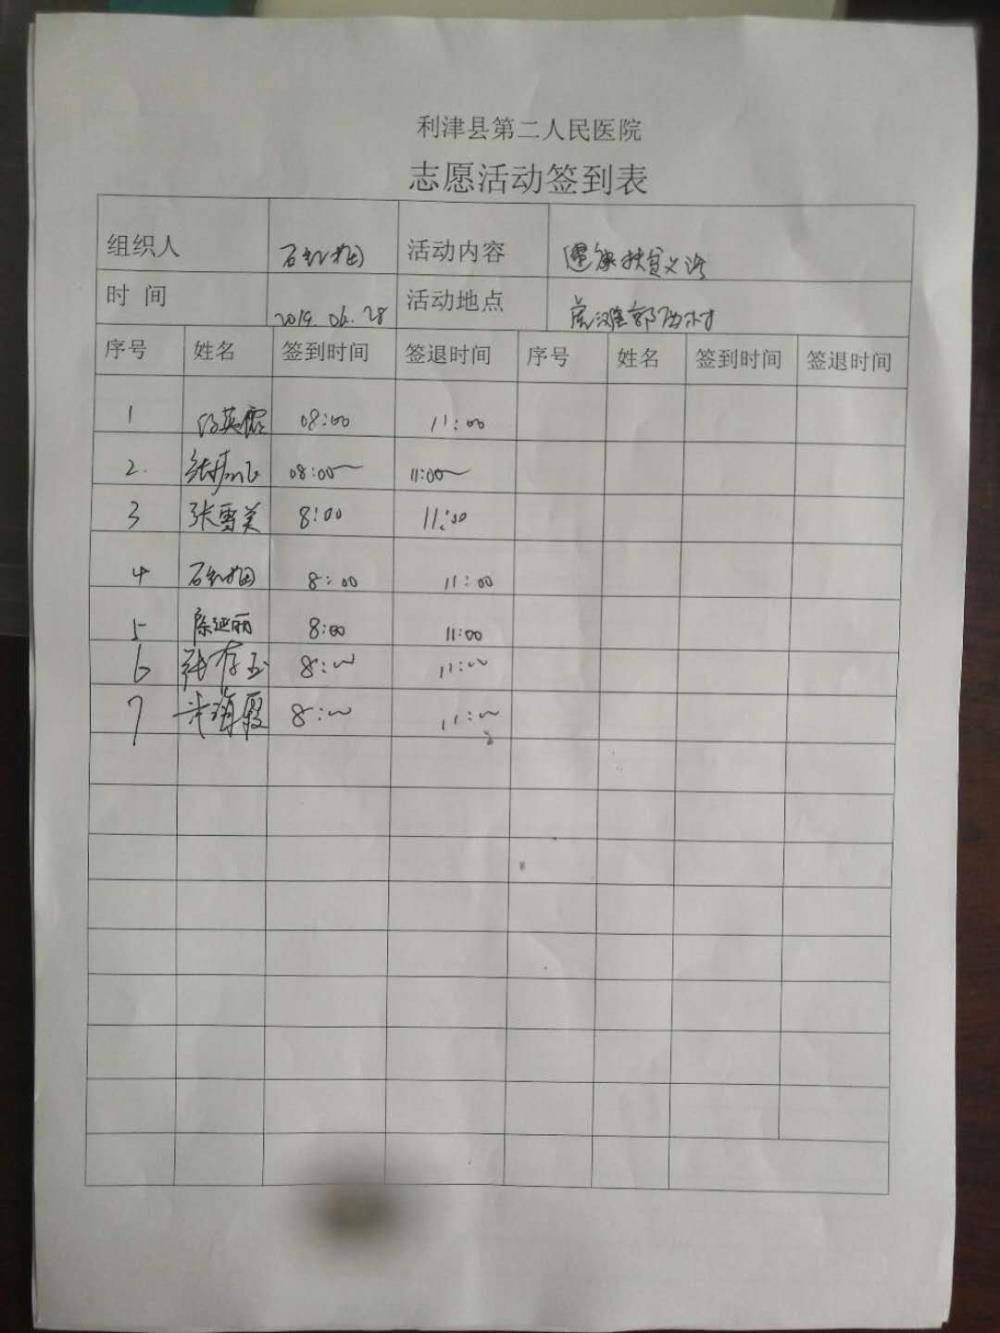 利津县第二人民医院
志愿活动签到表
组织人 石红梅 活动内容 健康扶贫义诊
时 间 2019.06.28 活动地点
序号 姓名 签到时间 签退时间 序号 姓名 签到时间 签退时间
1 08:00 11:00
2. 08:00 11:00
3 张雪美 8:00 11:00
4 石红梅 8:00 11:00
5 8:00 11:00
6 张存玉 8:00 11:00
7 8:00 11:00